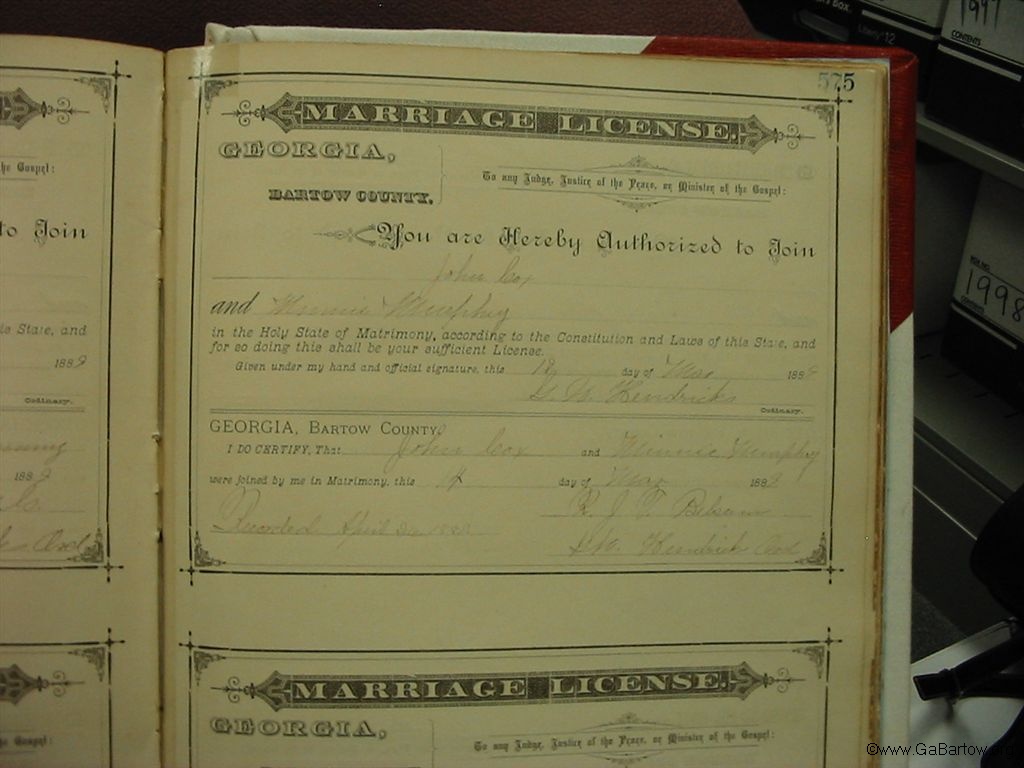 575
MARRIAGE LICENSE.
GEORGIA,
BARTOW COUNTY.
To any Judge, Justice of the Peace, or Minister of the Gospel:
You are Hereby Authorized to Join
John Cox
and Minnie
in the Holy State of Matrimony, according to the Constitution and Laws of this State, and
for so doing this shall be your sufficient License.
Given under my hand and official signature, this day of Mar 188
Hendricks
Ordinary.
GEORGIA, BARTOW COUNTY
I DO CERTIFY, That John Cox and Minnie
were joined by me in Matrimony, this 4 day of Mar 188
R. J. F.
Recorded April
Hendricks Ord
MARRIAGE LICENSE.
GEORGIA,
To any Judge, Justice of the Peace, or Minister of the Gospel:
the Gospel:
to Join
is State, and
1889
Ordinary.
188
Ord
the Gospel:
1997
CONTENTS
Liberty 12
BOX NO.
1998
CONTENTS
©www.GaBartow.org